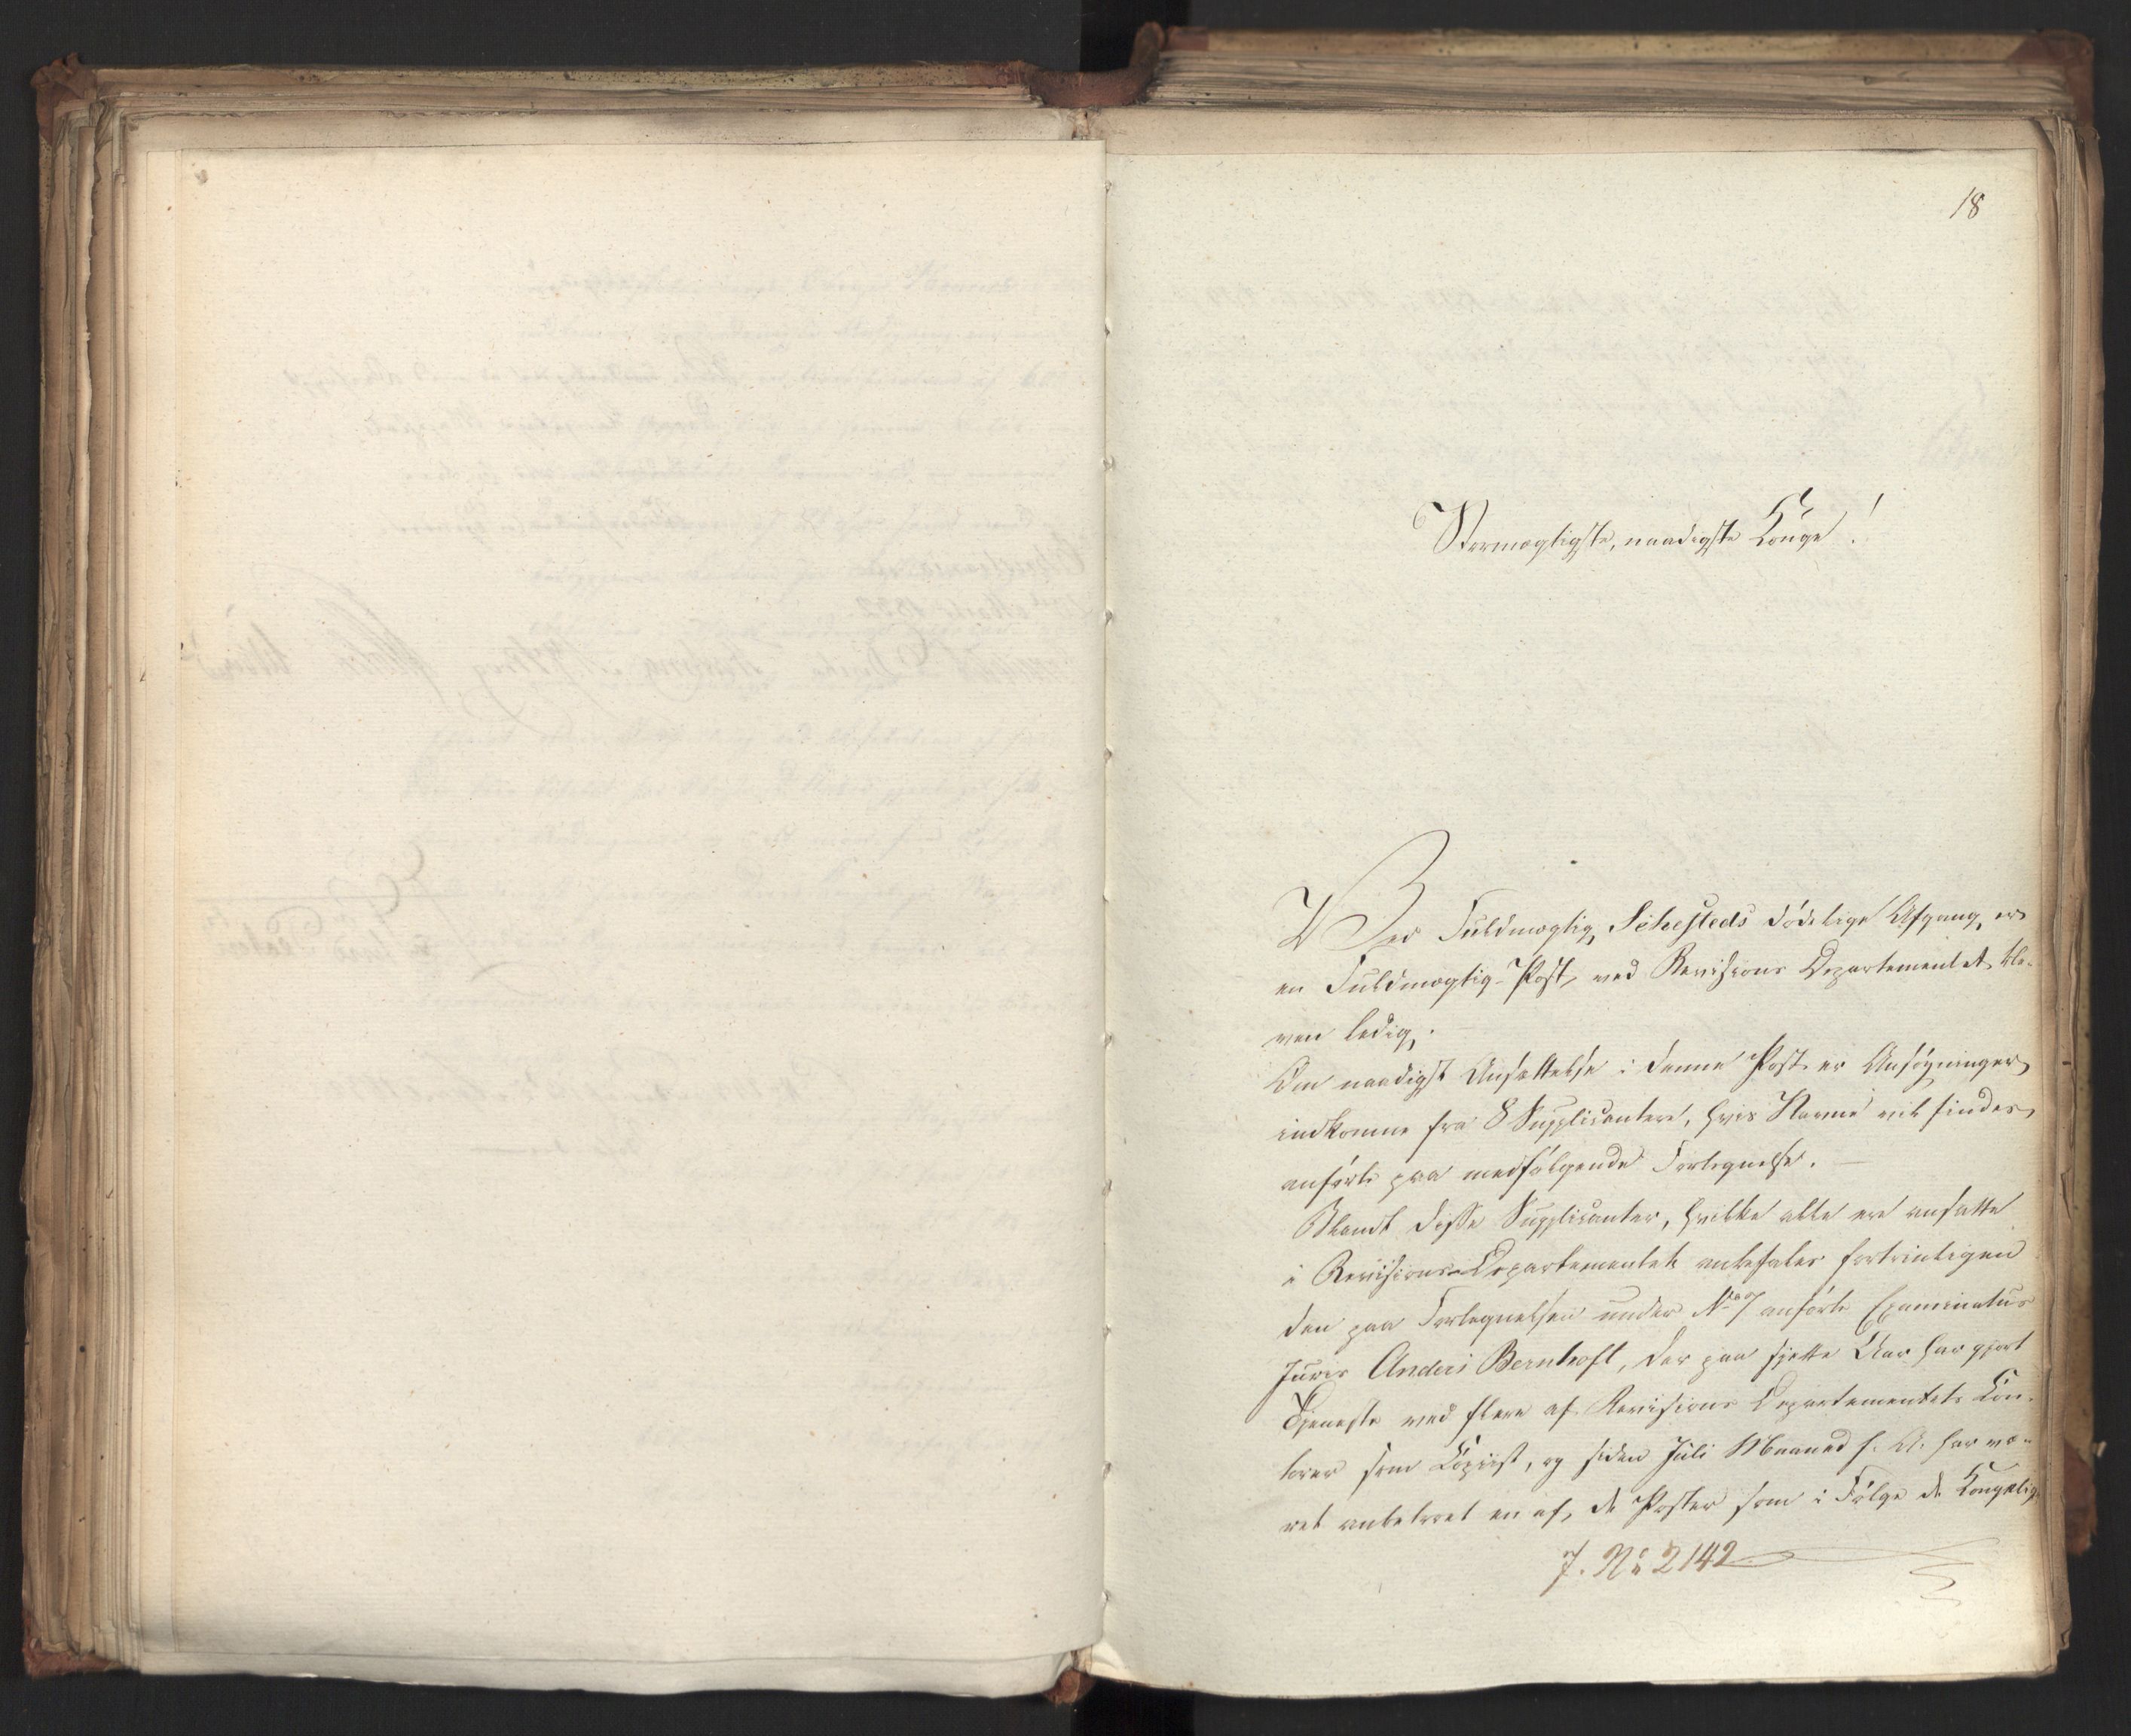 18
Stormægtigste, naadigste Konge!
Ved Fuldmægtig Sehesteds dødelige Afgang, er
en Fuldmægtig-Post, ved Revisions Departementet ble-
ven ledig.
Om naadigst Ansættelse i denne Post er Ansøgninger
indkomne fra 8 Supplicantere, hvis Navne vil findes
anførte paa medfølgende Fortegnelse. —
Blandt disse Supplicanter, hvilke alle ere ansatte
i Revisions-Departementet anbefales fortrinligen
den paa Fortegnelsen under No 7 anførte Examinatus
Juris Anders Bernhoft, der paa sjette Aar har gjort
Tjeneste ved flere af Revisions Departementets Con-
torer som Copiist, og siden Juli Maaned f. A. har væ-
ret anbetroet en af, de Poster som i Følge de Kongelige
J. No 2142